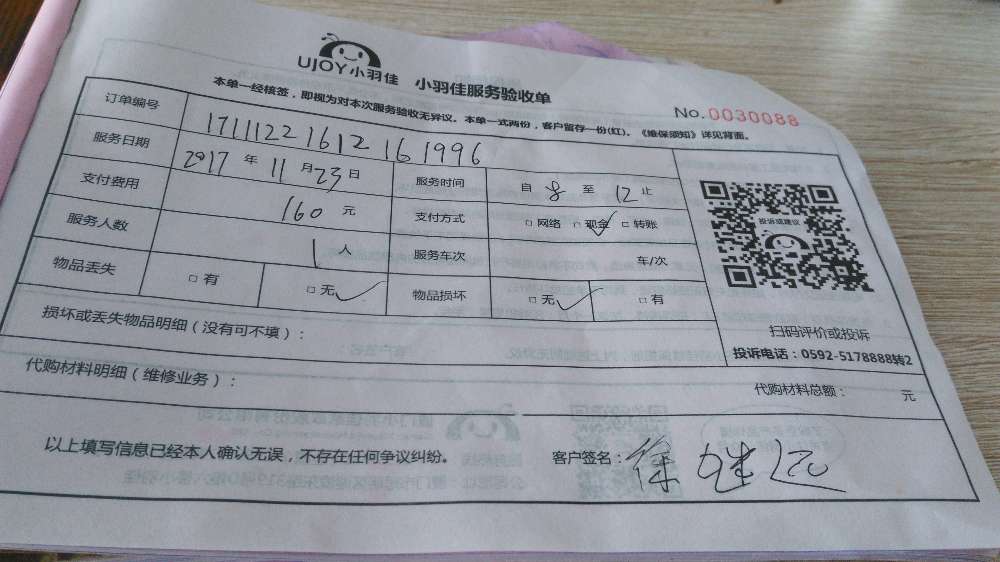 UJOY小羽佳 小羽佳服务验收单
No.0030088
本单一经核签，即视为对本次服务验收无异议。本单一式两份，客户留存一份(红)。《维保须知》详见背面。
订单编号 17111221612161996
服务日期 2017 年 11 月 23 日 服务时间 自 8 至 12 止
支付费用 160 元 支付方式 □网络 □现金 □转账
服务人数 1 人 服务车次 车/次
物品丢失 □有 □无 物品损坏 □无 □有
投诉或建议
扫码评价或投诉
投诉电话：0592-5178888转2
损坏或丢失物品明细（没有可不填）：
代购材料明细（维修业务）： 代购材料总额： 元
以上填写信息已经本人确认无误，不存在任何争议纠纷。 客户签名：徐